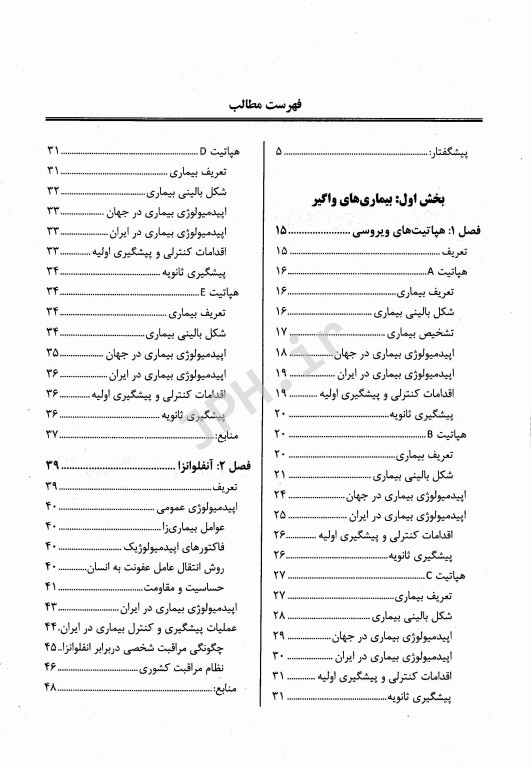 فهرست مطالب
پیشگفتار: ۵
بخش اول: بیماری‌های واگیر
فصل ۱: هپاتیت‌های ویروسی ۱۵
تعریف ۱۵
هپاتیت A ۱۶
تعریف بیماری ۱۶
شکل بالینی بیماری ۱۶
تشخیص بیماری ۱۷
اپیدمیولوژی بیماری در جهان ۱۸
اپیدمیولوژی بیماری در ایران ۱۹
اقدامات کنترلی و پیشگیری اولیه ۱۹
پیشگیری ثانویه ۲۰
هپاتیت B ۲۰
تعریف بیماری ۲۰
شکل بالینی بیماری ۲۱
اپیدمیولوژی بیماری در جهان ۲۴
اپیدمیولوژی بیماری در ایران ۲۵
اقدامات کنترلی و پیشگیری اولیه ۲۶
پیشگیری ثانویه ۲۶
هپاتیت C ۲۷
تعریف بیماری ۲۷
شکل بالینی بیماری ۲۸
اپیدمیولوژی بیماری در جهان ۲۹
اپیدمیولوژی بیماری در ایران ۳۰
اقدامات کنترلی و پیشگیری اولیه ۳۱
پیشگیری ثانویه ۳۱
هپاتیت D ۳۱
تعریف بیماری ۳۱
شکل بالینی بیماری ۳۲
اپیدمیولوژی بیماری در جهان ۳۳
اپیدمیولوژی بیماری در ایران ۳۳
اقدامات کنترلی و پیشگیری اولیه ۳۳
پیشگیری ثانویه ۳۴
هپاتیت E ۳۴
تعریف بیماری ۳۴
شکل بالینی بیماری ۳۴
اپیدمیولوژی بیماری در جهان ۳۵
اپیدمیولوژی بیماری در ایران ۳۶
اقدامات کنترلی و پیشگیری اولیه ۳۶
پیشگیری ثانویه ۳۶
منابع: ۳۷
فصل ۲: آنفلوانزا ۳۹
تعریف ۳۹
اپیدمیولوژی عمومی ۴۰
عوامل بیماری‌زا ۴۰
فاکتورهای اپیدمیولوژیک ۴۰
روش انتقال عامل عفونت به انسان ۴۰
حساسیت و مقاومت ۴۱
اپیدمیولوژی بیماری در ایران ۴۳
عملیات پیشگیری و کنترل بیماری در ایران ۴۴
چگونگی مراقبت شخصی دربرابر انفلوانزا ۴۵
نظام مراقبت کشوری ۴۶
منابع: ۴۸
JPH.ir